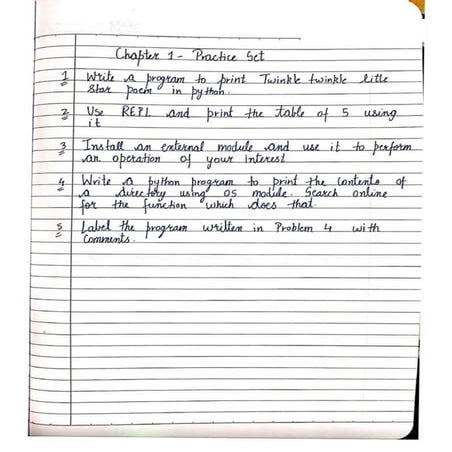 Chapter 1 - Practice Set
1 Write a program to print Twinkle twinkle little
Star poem in python.
2 Use REPL and print the table of 5 using
it
3 Install an external module and use it to perform
an operation of your interest
4 Write a python program to print the contents of
a directory using os module. Search online
for the function which does that.
5 Label the program written in Problem 4 with
Comments.